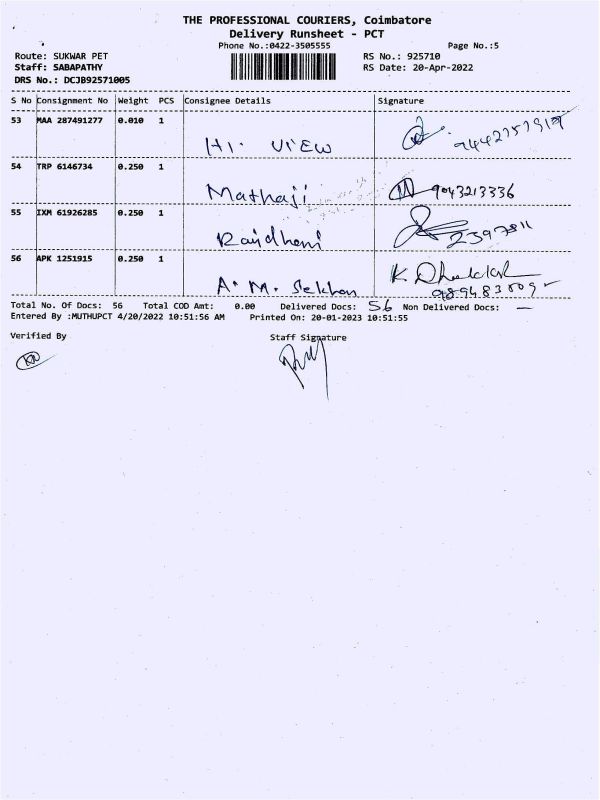 THE PROFESSIONAL COURIERS, Coimbatore
Delivery Runsheet - PCT
Phone No.:0422-3505555
Page No.:5
Route: SUKWAR PET
RS No.: 925710
Staff: SABAPATHY
RS Date: 20-Apr-2022
DRS No.: DCJB92571005
S No Consignment No Weight PCS Consignee Details Signature
53 MAA 287491277 0.010 1
HI. VIEW
54 TRP 6146734 0.250 1
Mathaji 9043213336
55 IXM 61926285 0.250 1
Rajdhani
56 APK 1251915 0.250 1
A. M. Sekhar K.
Total No. Of Docs: 56 Total COD Amt: 0.00 Delivered Docs: 56 Non Delivered Docs: —
Entered By :MUTHUPCT 4/20/2022 10:51:56 AM Printed On: 20-01-2023 10:51:55
Verified By Staff Signature